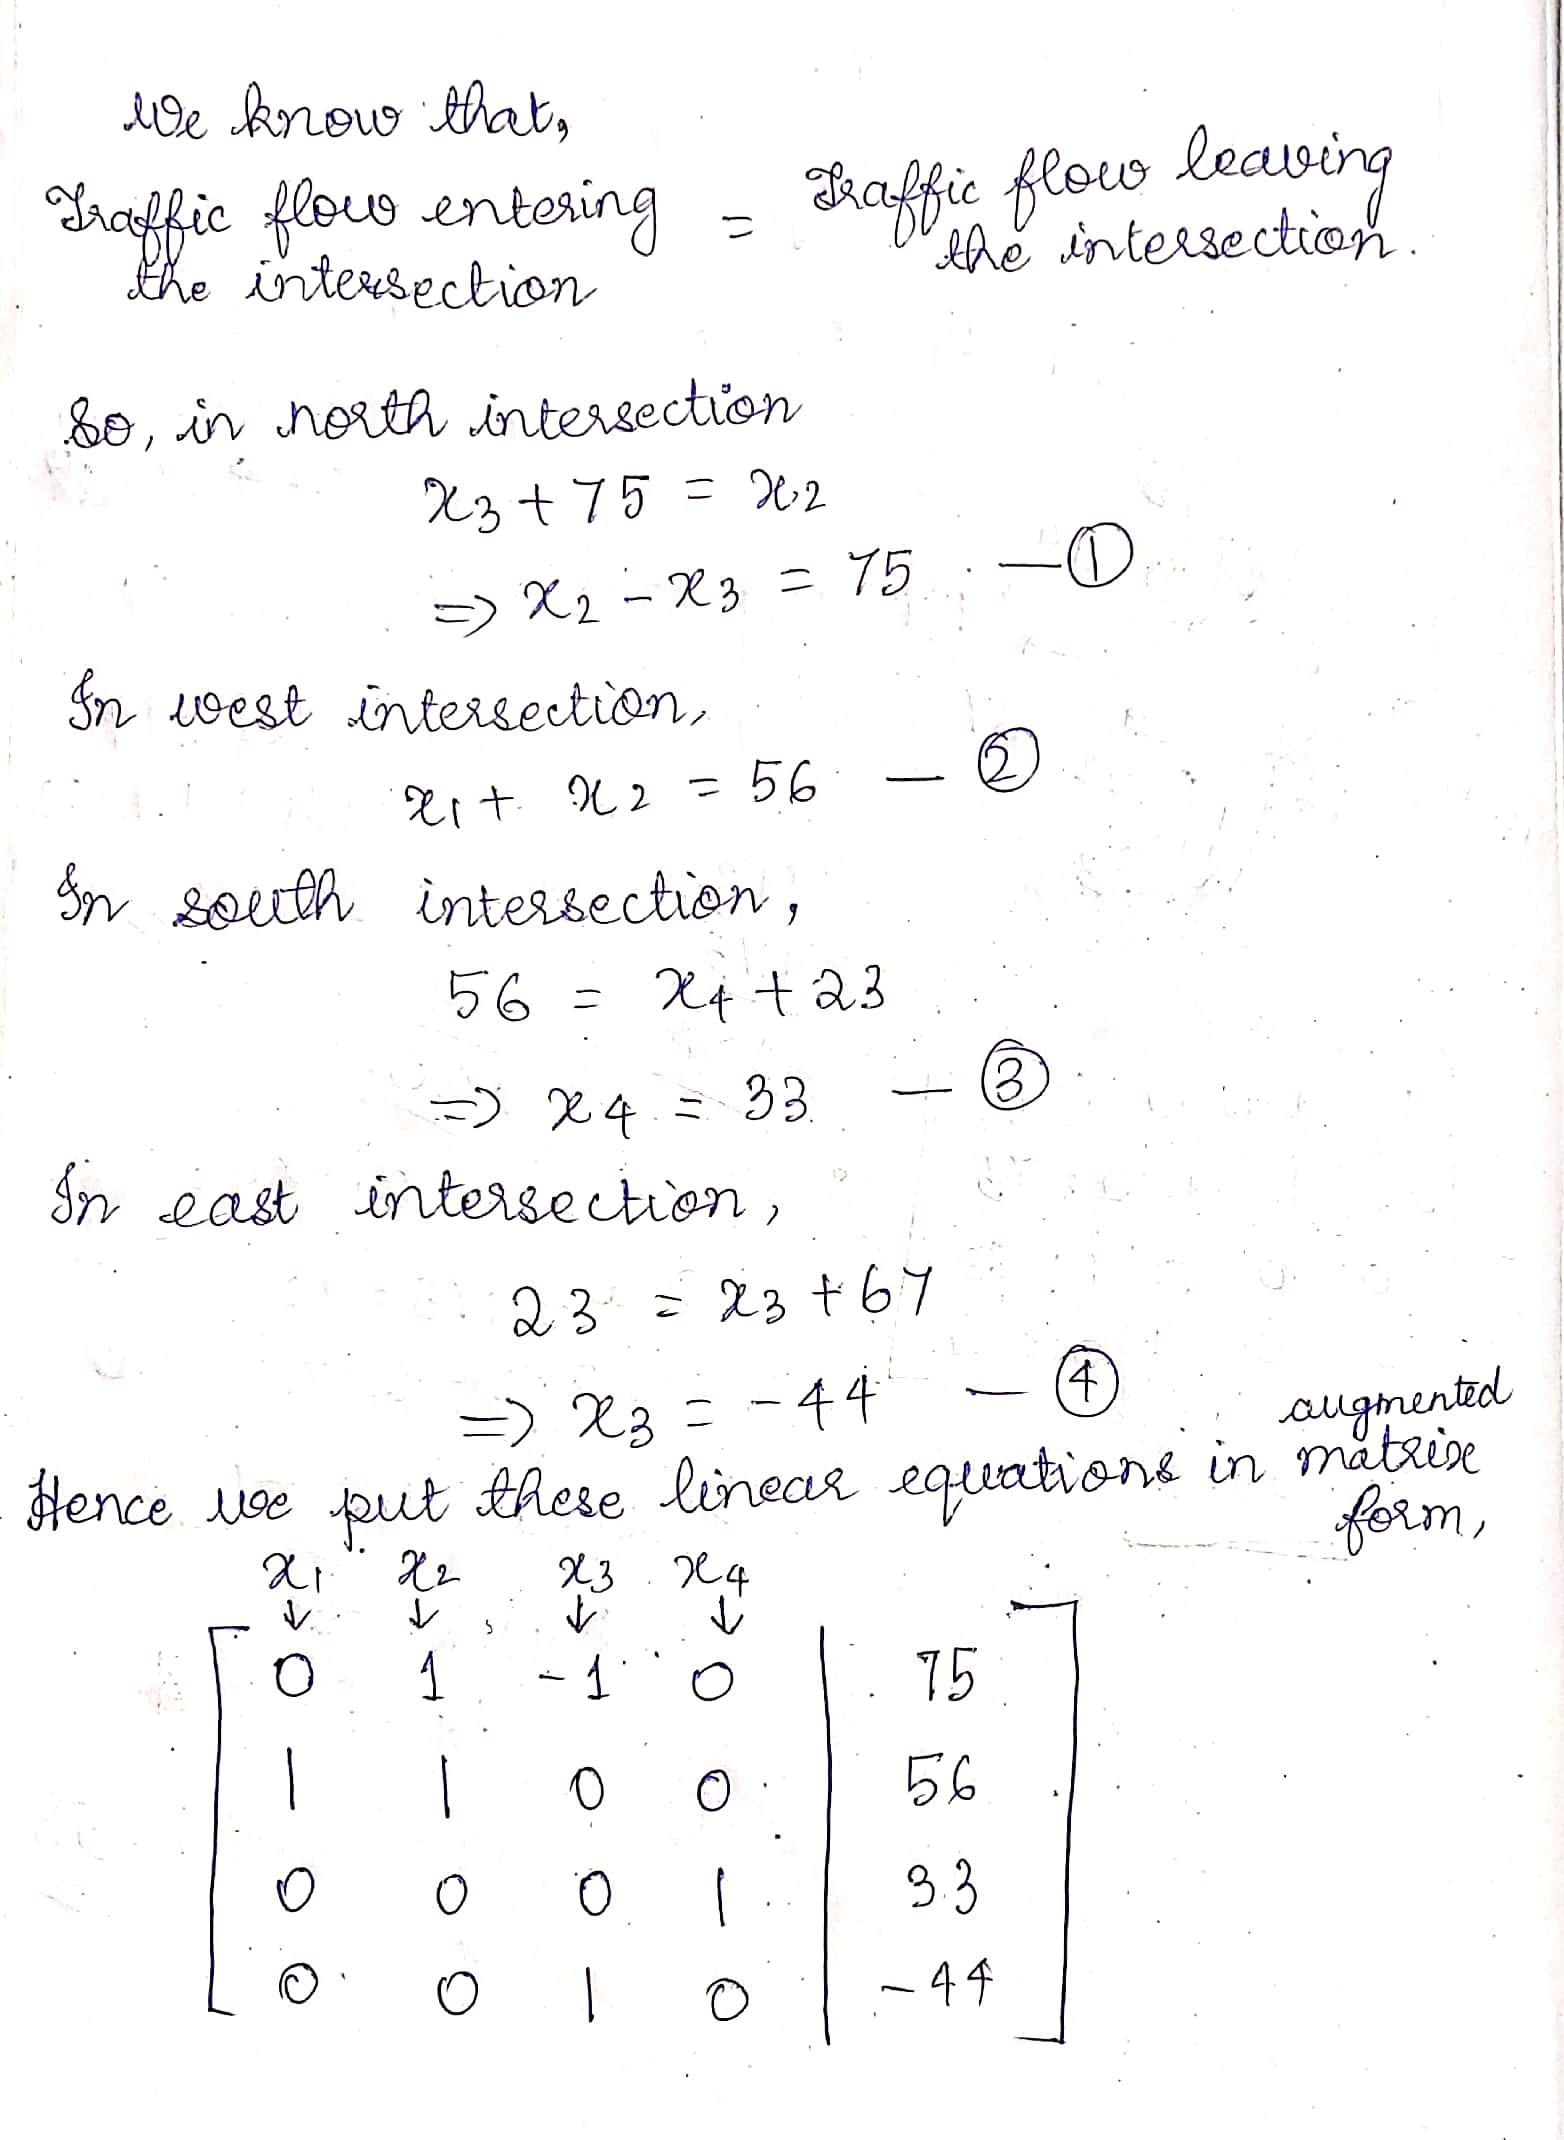 We know that,
Traffic flow entering = Traffic flow leaving
the intersection the intersection.
So, in north intersection
x₃ + 75 = x₂
=> x₂ - x₃ = 75 — ①
In west intersection,
x₁ + x₂ = 56 — ②
In south intersection,
56 = x₄ + 23
=> x₄ = 33 — ③
In east intersection,
23 = x₃ + 67
=> x₃ = -44 — ④
Hence we put these linear equations in augmented matrix
form,
x₁ x₂ x₃ x₄
↓ ↓ ↓ ↓
0 1 -1 0 | 75
1 1 0 0 | 56
0 0 0 1 | 33
0 0 1 0 | -44